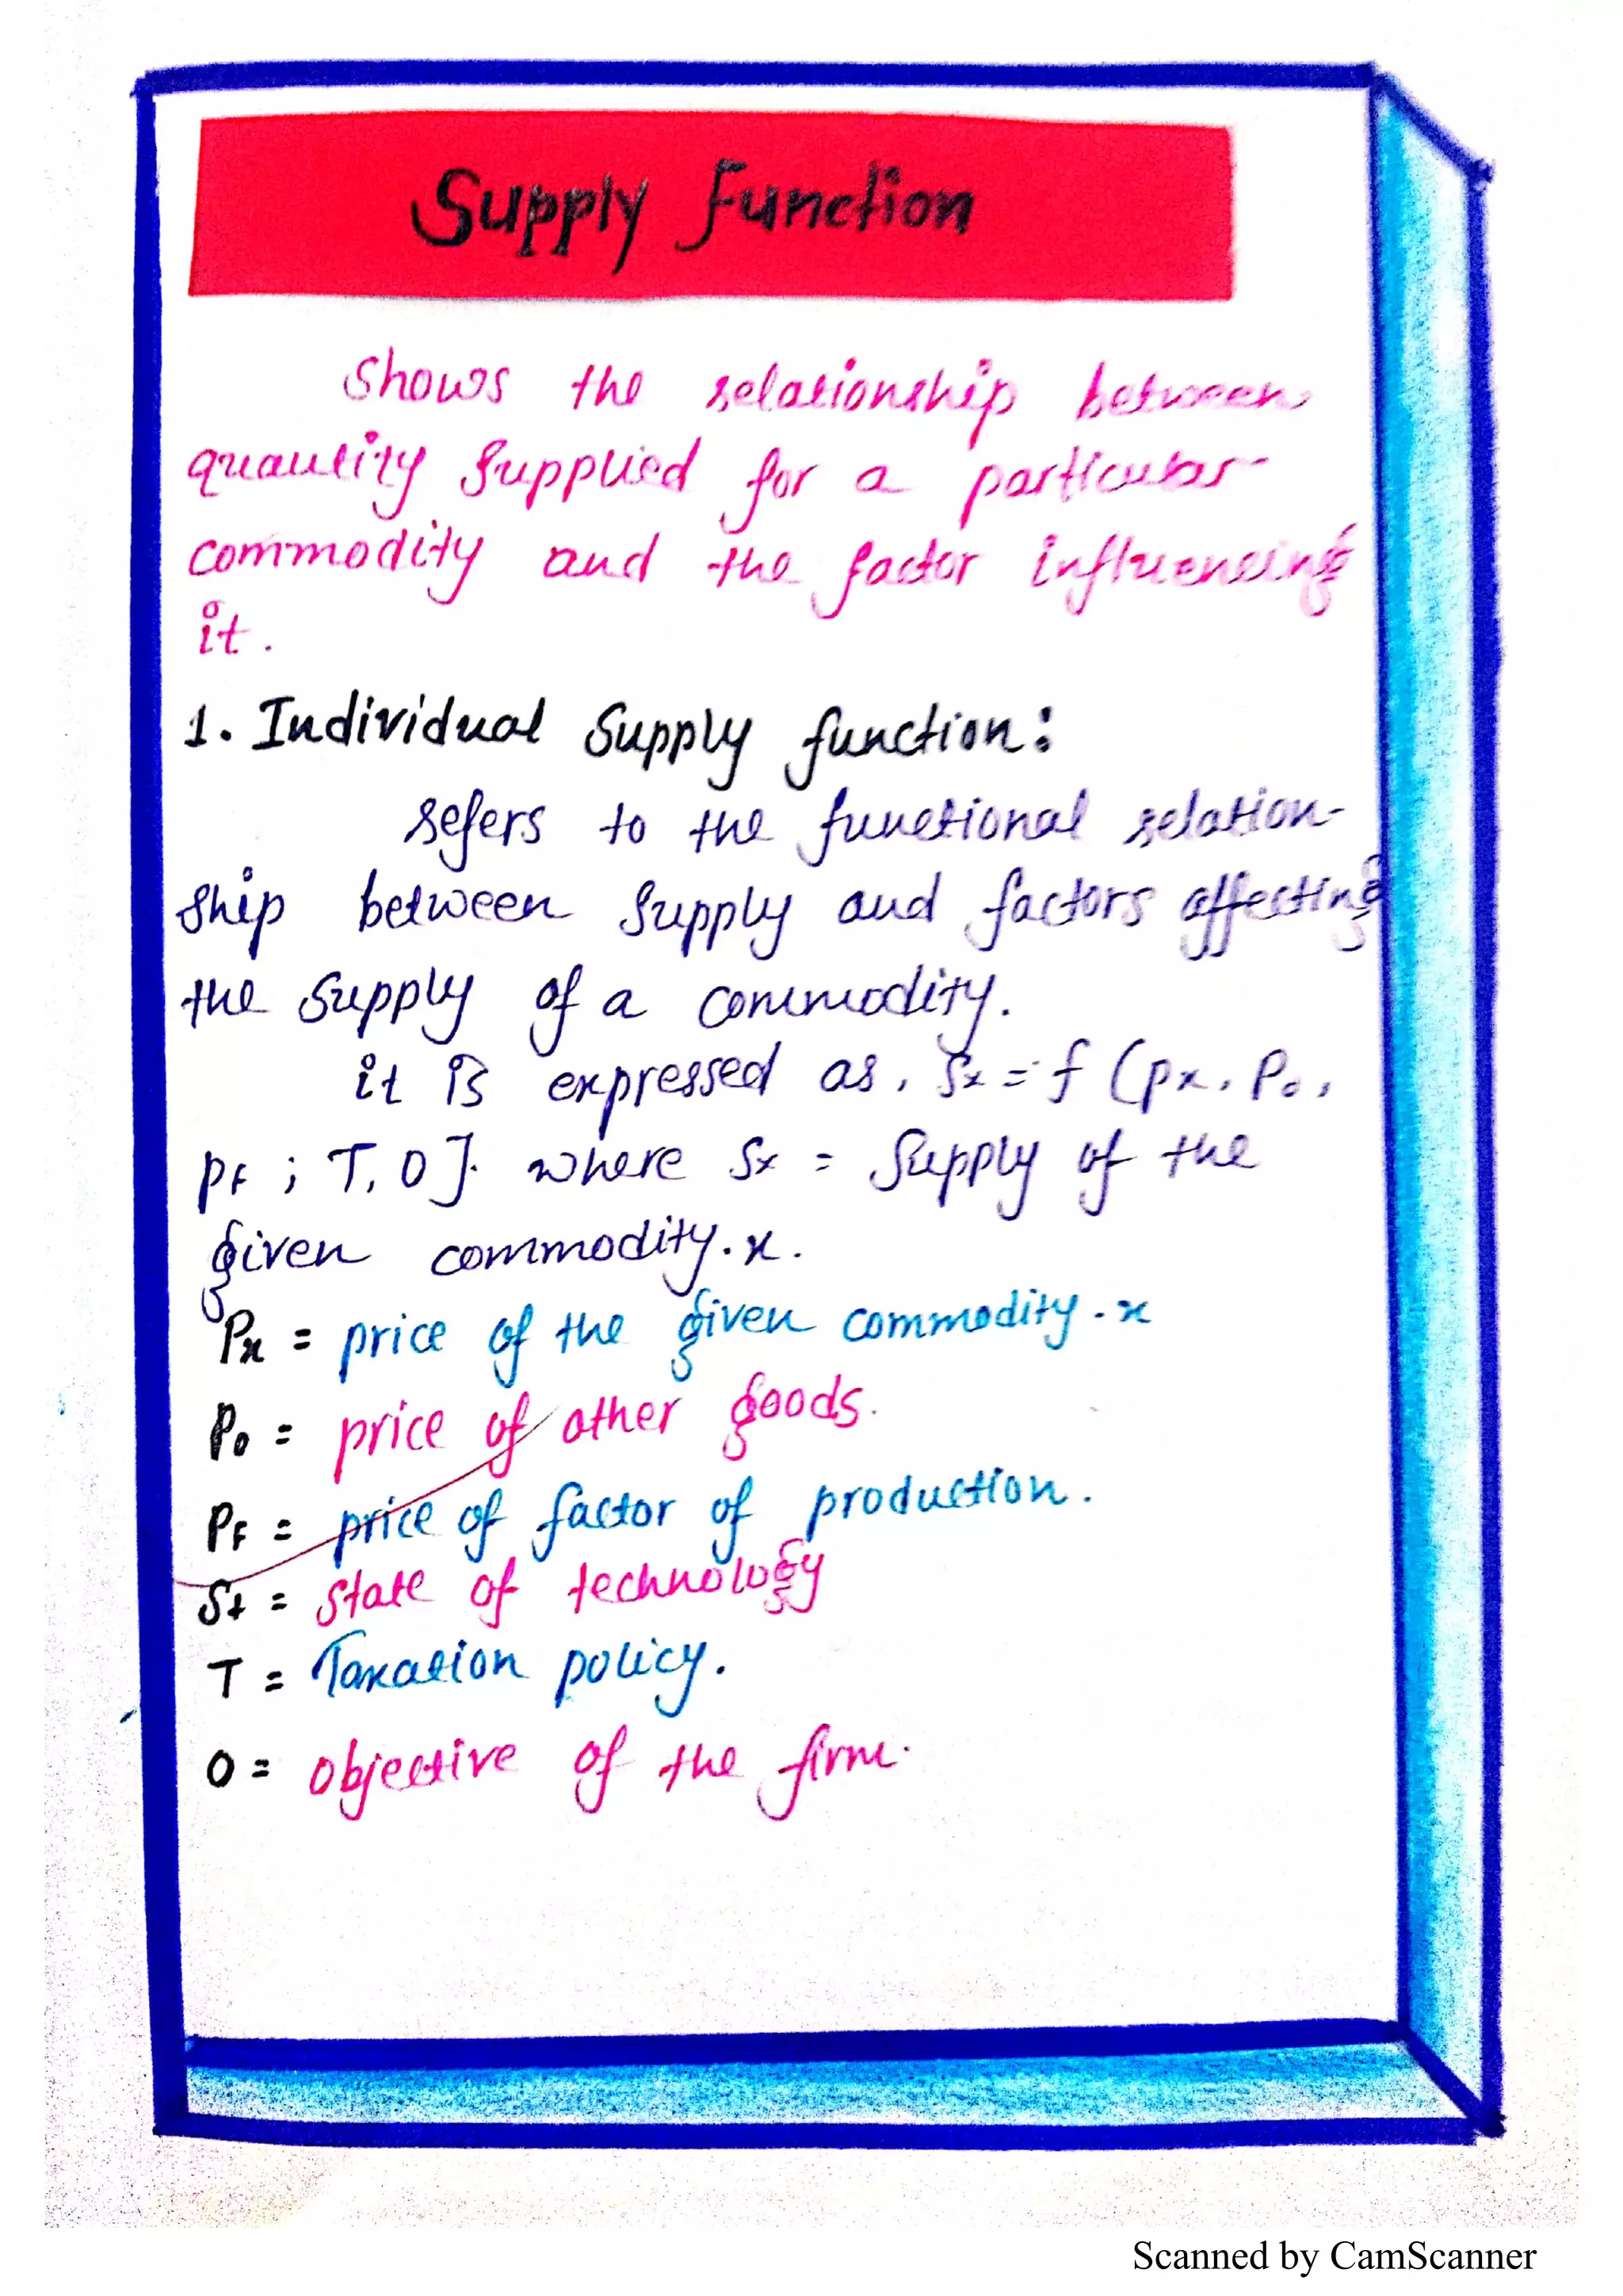 Supply Function
Shows the relationship between
quantity supplied for a particular
commodity and the factor influencing
it.
1. Individual Supply function:
refers to the functional relation-
ship between supply and factors affecting
the supply of a commodity.
it is expressed as, Sx = f (Px, Po,
PF ; T, O]. where Sx = Supply of the
given commodity.x.
Px = price of the given commodity.x
Po = price of other goods.
PF = price of factor of production.
St = State of technology
T = Taxation policy.
O = objective of the firm.
Scanned by CamScanner